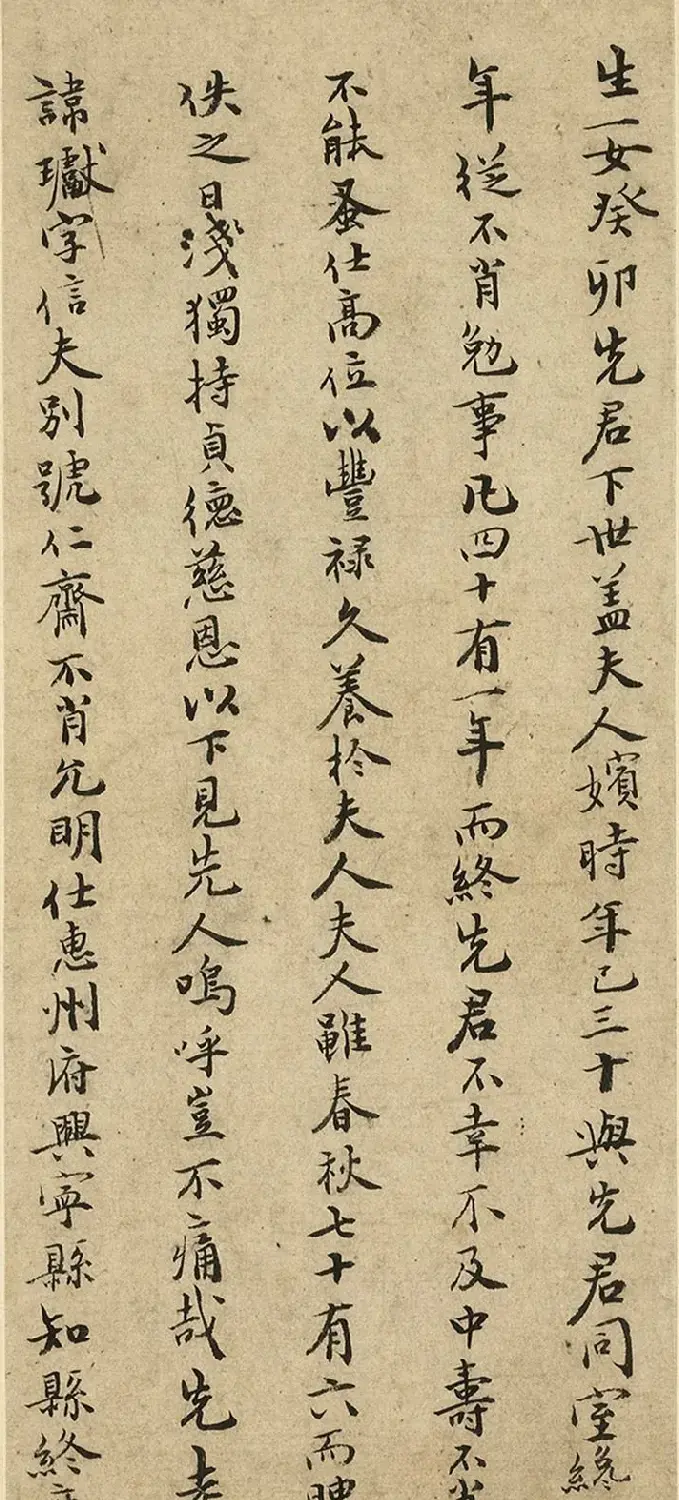 生一女癸卯先君下世盖夫人嬪時年已三十與先君同室纔
年從不肖勉事凡四十有一年而終先君不幸不及中壽不肖
不能蚤仕高位以豐禄久養扵夫人夫人雖春秋七十有六而
佚之日淺獨持貞德慈恩以下見先人嗚呼豈不痛哉先
諱瓛字信夫别號仁齋不肖允明仕惠州府興寧縣知縣終